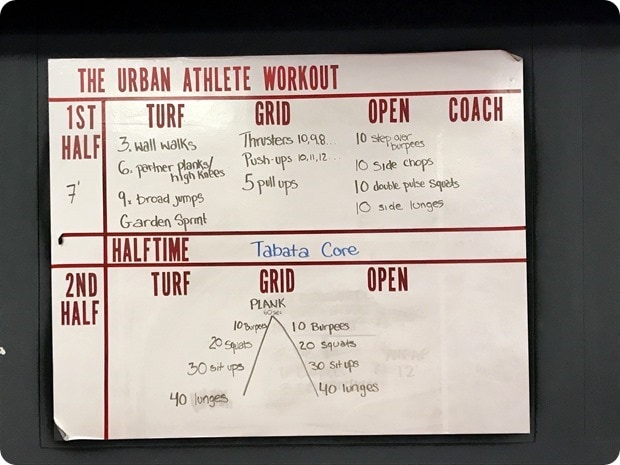 THE URBAN ATHLETE WORKOUT
1ST HALF
7'
TURF
3. wall walks
6. partner planks/
high knees
9. broad jumps
Garden Sprint
GRID
Thrusters 10,9,8...
Push-ups 10,11,12...
5 pull ups
OPEN
10 step over
burpees
10 side chops
10 double pulse squats
10 side lunges
COACH
HALFTIME
Tabata Core
2ND HALF
TURF
GRID
OPEN
PLANK
60 sec
10 Burpees 10 Burpees
20 Squats 20 squats
30 sit ups 30 sit ups
40 lunges 40 lunges